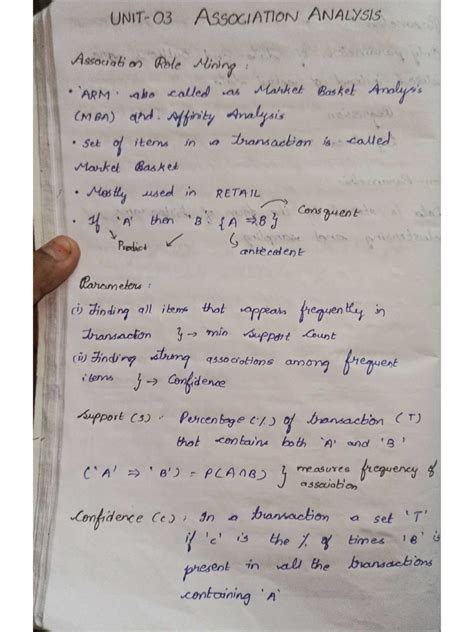 UNIT-03 ASSOCIATION ANALYSIS
Association Role Mining :
• 'ARM' also called as Market Basket Analysis
(MBA) and Affinity Analysis
• Set of items in a transaction is called
Market Basket
• Mostly used in RETAIL
• If 'A' then 'B' {A ⇒ B}
Consquent
Predict
antecedent
Parameters :
(i) Finding all items that appears frequently in
Transaction } → min support count
(ii) Finding strong associations among frequent
items } → Confidence
Support (s) : Percentage (%) of transaction (T)
that contains both 'A' and 'B'
('A' ⇒ 'B') = P(A∩B) } measures frequency of
association
Confidence (c) : In a transaction a set 'T'
if 'c' is the % of times 'B' is
present in all the transactions
containing 'A'